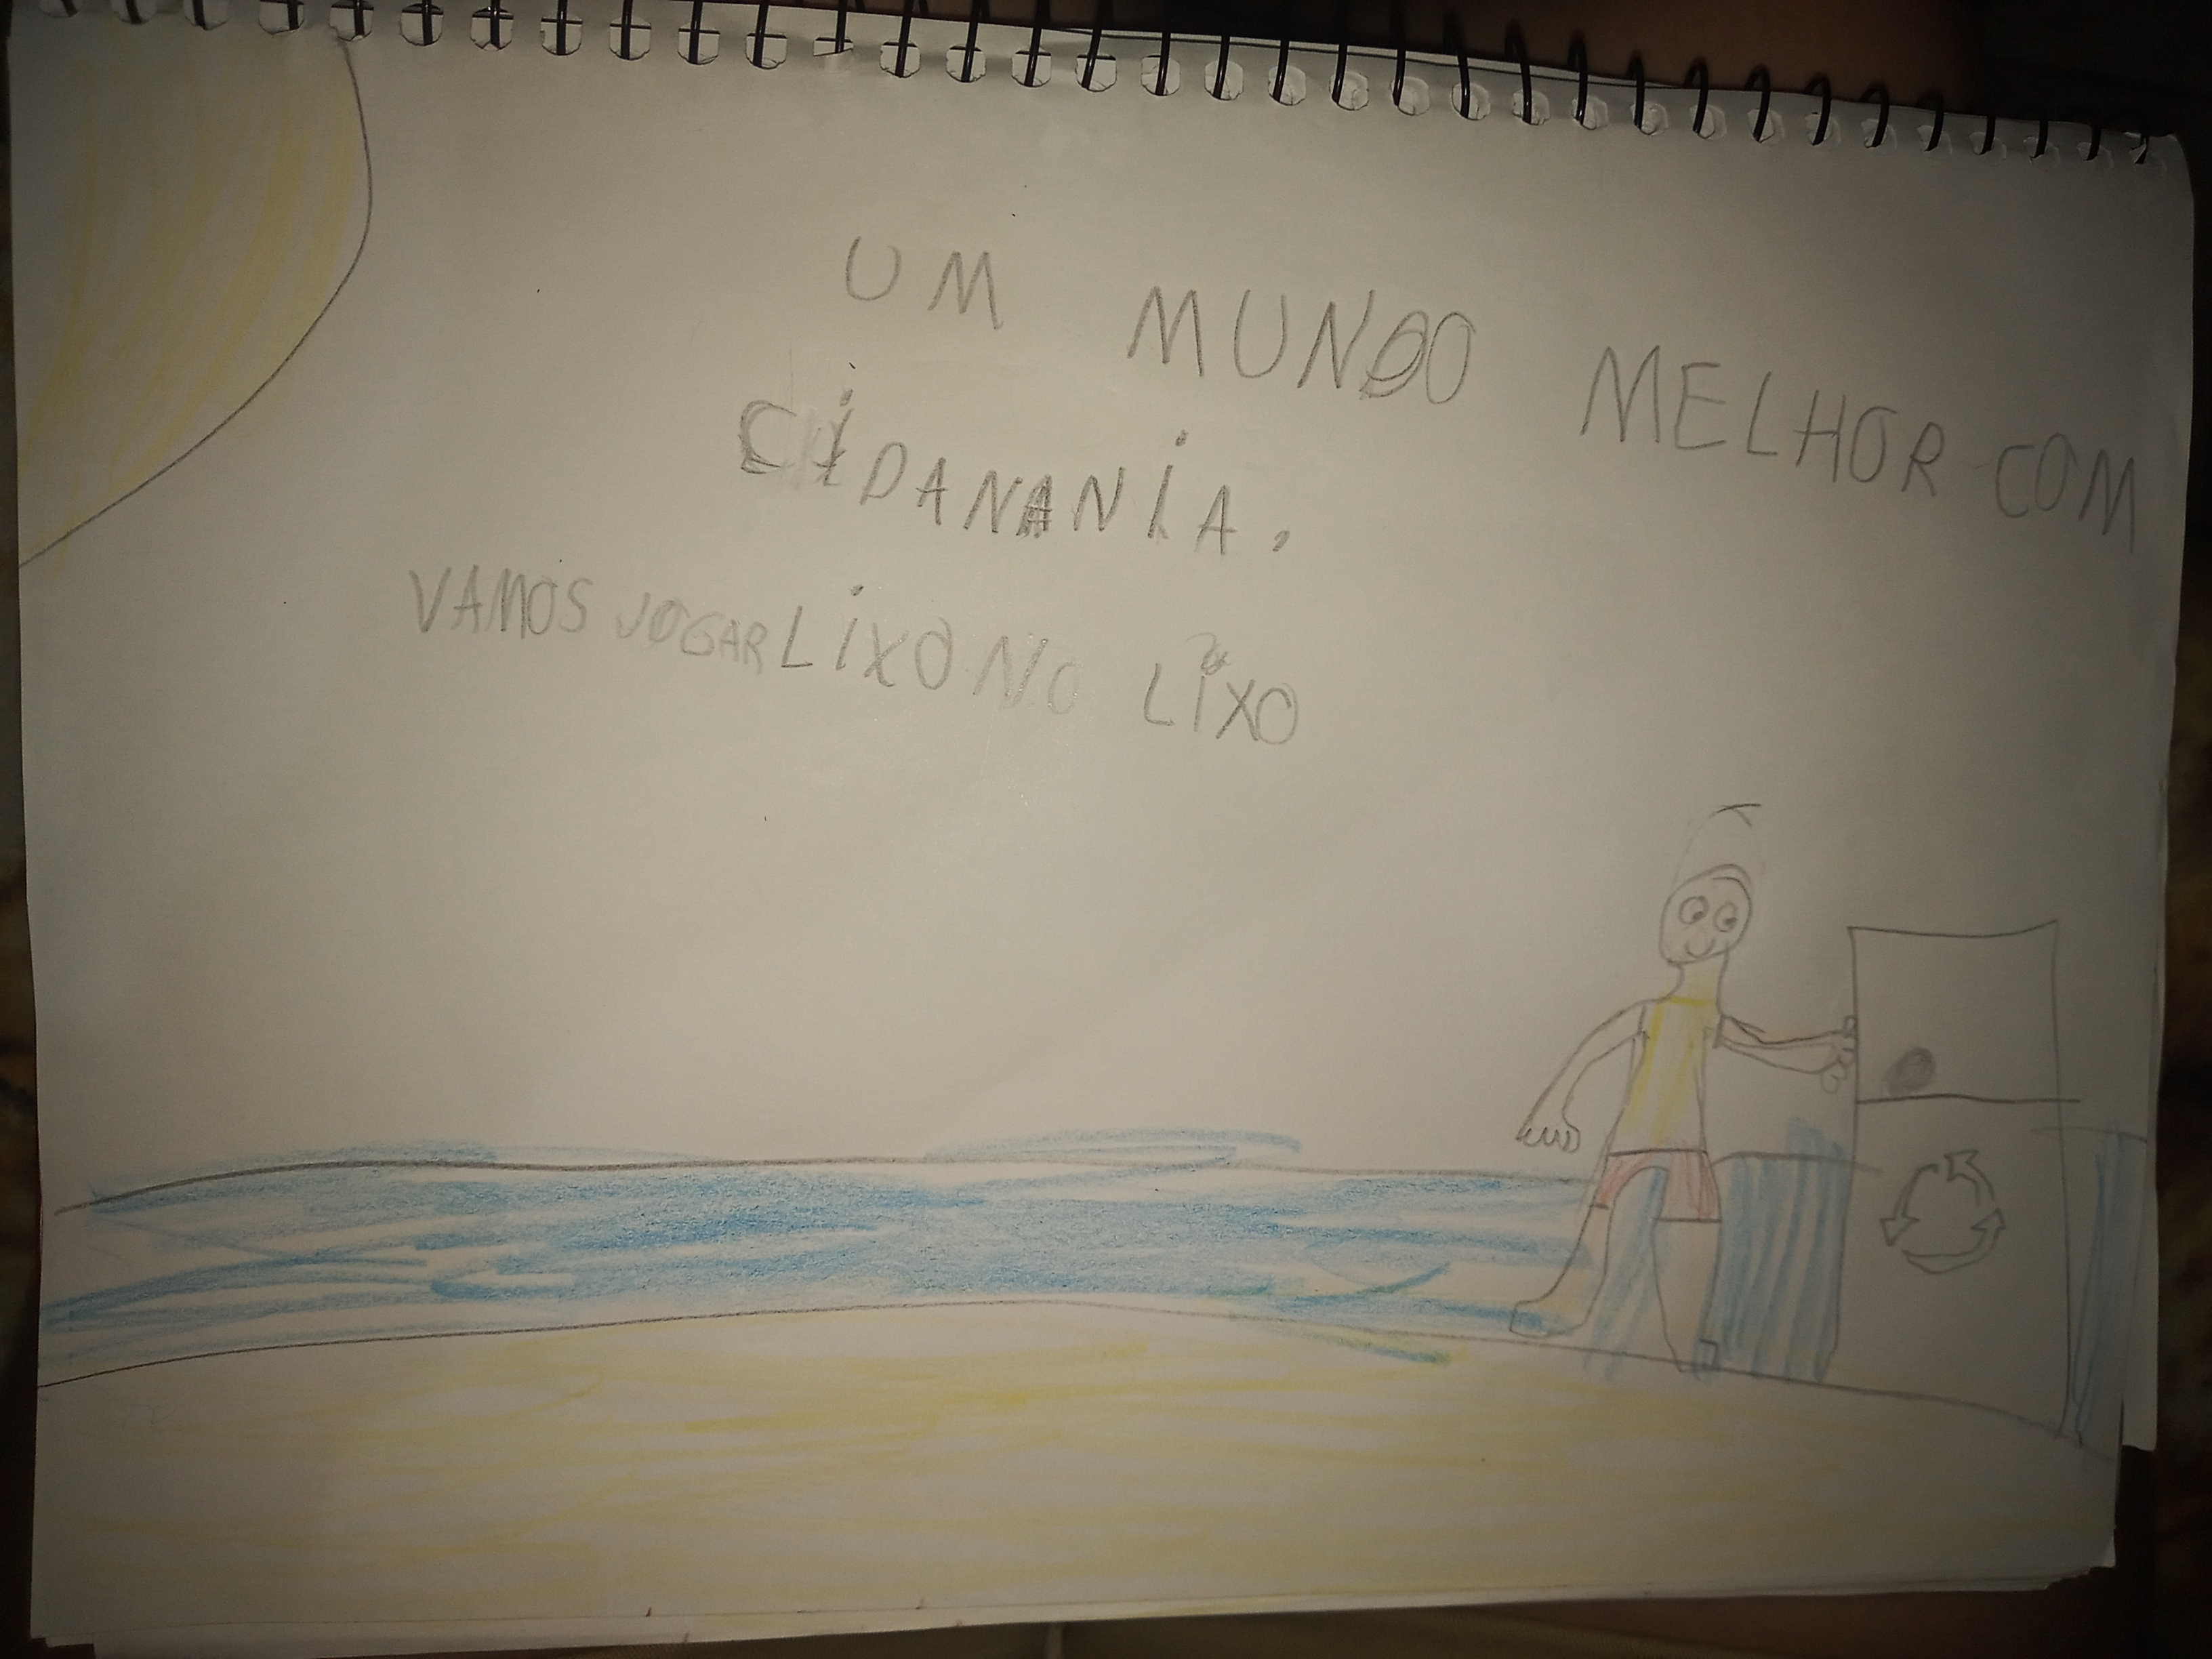 UM MUNDO MELHOR COM
CIDANANIA,
VAMOS JOGAR LIXO NO LIXO